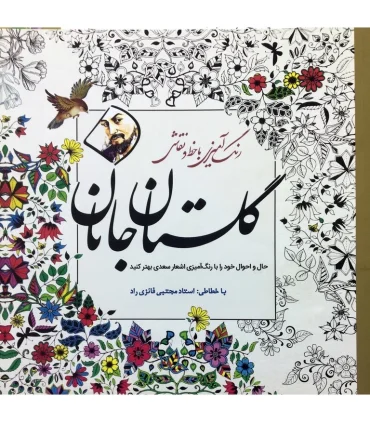 رنگ‌آمیزی با خط و نقاشی
گلستان جانان
حال و احوال خود را با رنگ‌آمیزی اشعار سعدی بهتر کنید
با خطاطی: استاد مجتبی فائزی راد